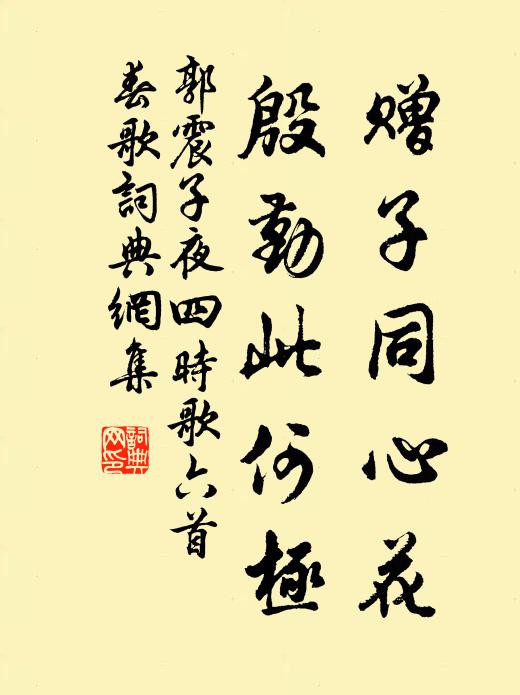 赠子同心花
殷勤此何極
郭震子夜四時歌六首
春歌詞典網集
詞典
网印